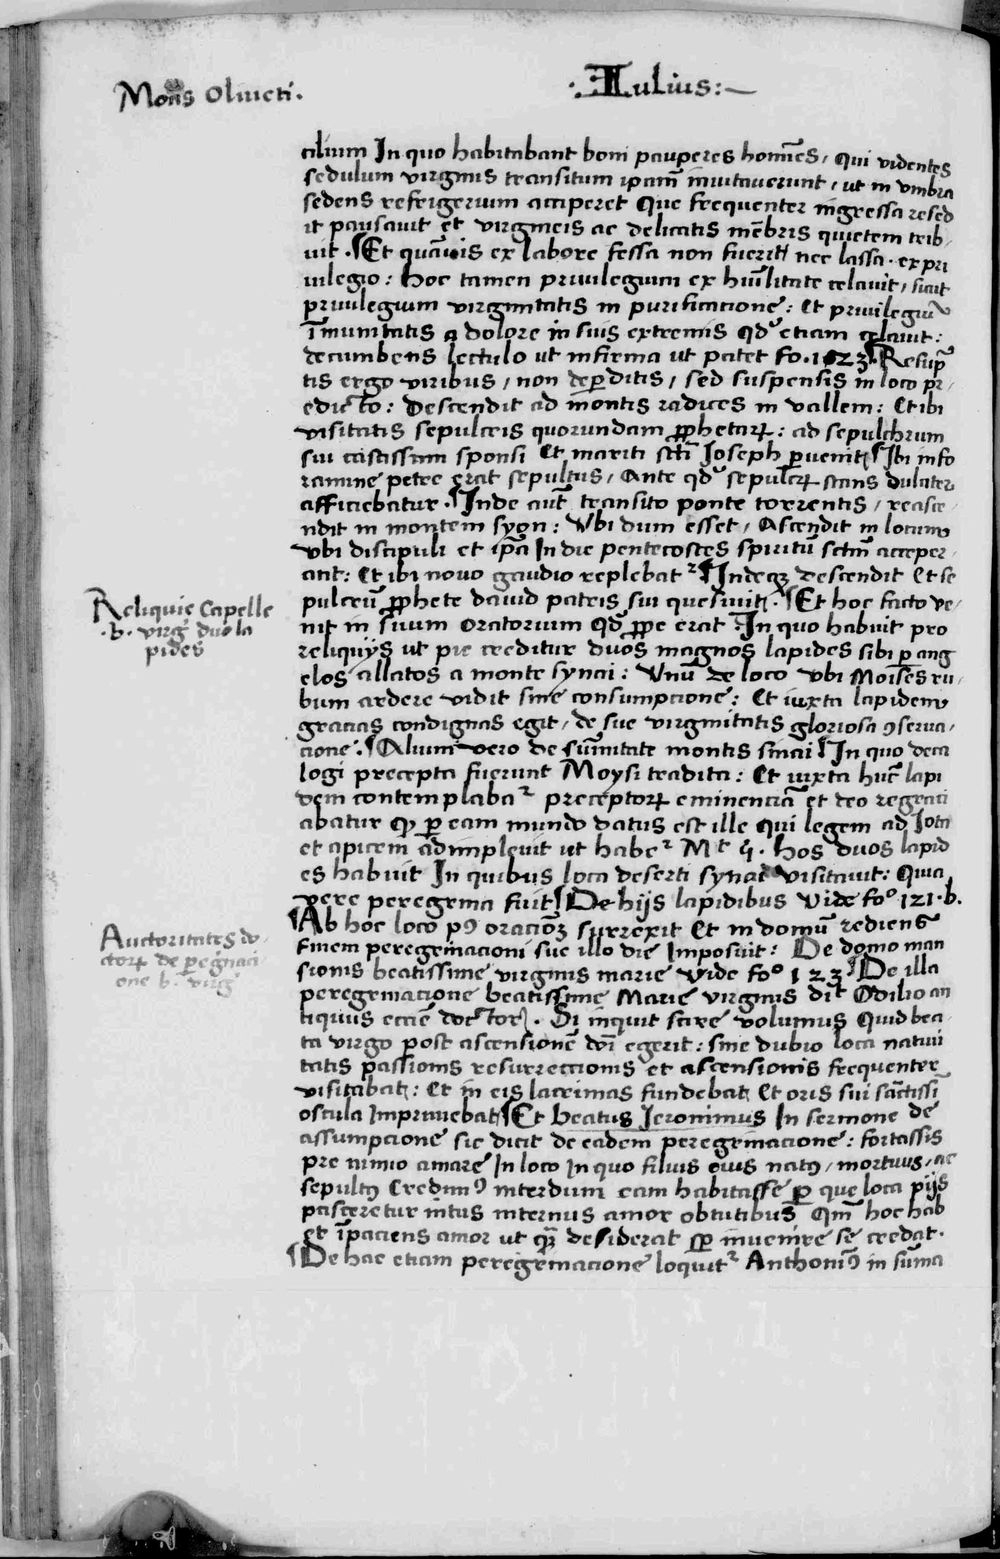 Mons Oliueti.
·Iulius:~
cilium In quo habitabant boni pauperes hom̄ies, Qui videntes
sedulum virginis transitum ip̄am̄ inuitauerunt, ut in vmbra
sedens refrigerium acciperet Que frequenter ingressa resed
it pausauit et virgineis ac delicatis mēbris quietem trib-
uit. ¶Et quāuis ex labore fessa non fuerit nec lassa. ex pri
uilegio: hoc tamen priuilegium ex hūilitate celauit, sicut
priuilegium virginitatis in purificacione: Et priuilegiū
īmunitatis a dolore in suis extremis qd' etiam celauit:
decumbens lectulo ut infirma ut patet fo. 123. Resūp
tis ergo viribus, non deꝑditis, sed suspensis in loco pr-
edicto: Descendit ad montis radices in vallem: Et ibi
visitatis sepulcris quorundam ꝓphetarꝝ: ad sepulchrum
sui castissimi sponsi Et mariti sc̄ti Joseph ꝑuenit ¶Ibi in fo
ramine petre erat sepultus, Ante qd' sepulcrꝝ stans dulciter
afficiebatur. ¶Inde aut̄ transito ponte torrentis, reasce-
ndit in montem syon: Vbi dum esset, Ascendit in locum
vbi discipuli et ip̄a In die pentecostes spiritū sctm̄ acceper-
ant: Et ibi nouo gaudio replebatᷣ ¶Indeqꝫ descendit Et se
pulcrū ꝓphete dauid patris sui quesiuit. ¶Et hoc facto ve-
nit in suum oratorium qd' ꝓpe erat. In quo habuit pro
reliquijs ut pie creditur duos magnos lapides sibi ꝑ ang
elos allatos a monte synai: Vnū de loco vbi Moises ru-
bum ardere vidit sine consumpcione: Et iuxta lapidem
gracias condignas egit, de sue virginitatis gloriosa ꝯserua-
cione. ¶Alium vero de sūmitate montis sinai ¶In quo deca
logi precepta fuerunt Moysi tradita: Et iuxta hūc lapi
dem contemplabaᷣ preceptorꝝ eminenciā et deo regraci
abatur ꝙ ꝑ eam mundo datus est ille Qui legem ad Iota
et apicem adimpleuit ut habeᷣ Mt 5. Hos duos lapid
es habuit In quibus loca deserti synai visitauit: Quia
vere peregrina fuit ¶De hijs lapidibus vide foº 121.b.
¶Ab hoc loco pꝰ oracioꝫ surrexit Et in domū rediens
finem peregrinacioni sue illo die Imposuit: De domo man
sionis beatissime virginis marie vide foº 123 ¶De illa
peregrinacione beatissime Marie virginis dic̄t Odilio an
tiquus ecc̄ie doctor. Si inquit scire volumus Quid bea-
ta virgo post ascensionē dn̄i egerit: sine dubio loca natiui
tatis passionis resurreccionis et ascensionis frequenter
visitabat: Et in eis lacrimas fundebat Et oris sui sāctissi
oscula Imprimebat ¶Et beatus Ieronimus In sermone de
assumpcione sic dicit de eadem peregrinacione: fortassis
pre nimio amare In loco In quo filius eius natꝰ, mortuus, ac
sepultꝰ Credimꝰ interdum eam habitasse ꝑ que loca pijs
pasceretur intus internus amor obtutibus Qm̄ hoc hab
et īpaciens amor ut quē desiderat sꝑ inuenire se credat.
¶De hac etiam peregrinacione loquitᷣ Anthoniꝰ in sūma
Reliquie Capelle
.b. virg' duo la
pides
Auctoritates do-
ctorꝝ de ꝑegrinaci-
one b. virg'